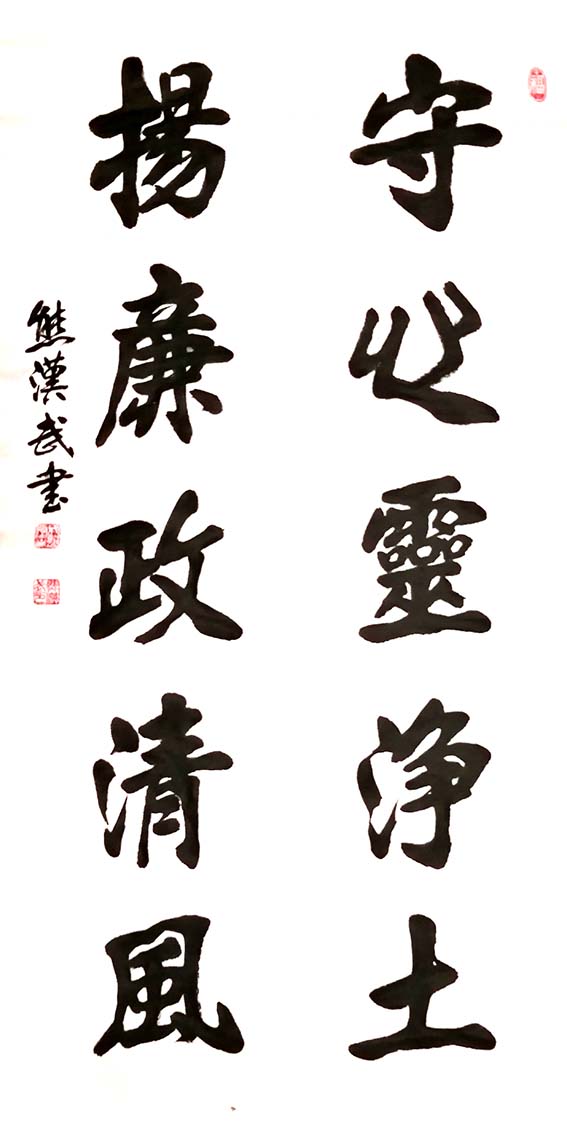 守心靈浄土
揚廉政清風
熊漢武書